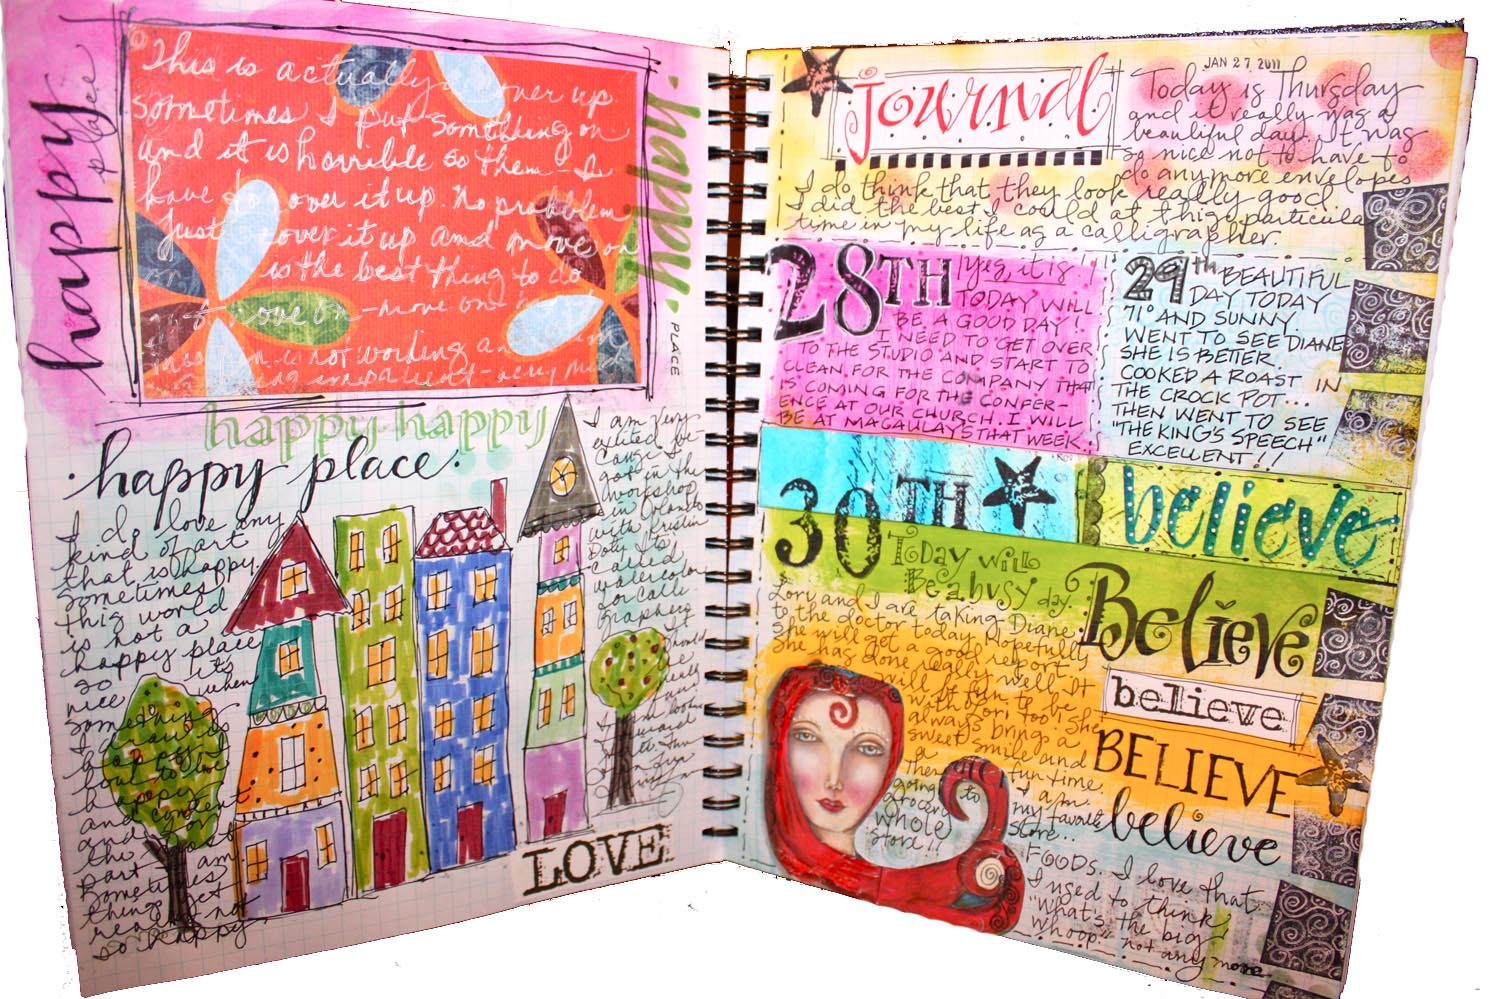 happy
place
This is actually a cover up
sometimes I put something on
and it is horrible so then - I
have to cover it up. No problem
Just cover it up and move on
is the best thing to do
move on - move on -
this pen is not working
happy
PLACE
happy happy
happy place.
I do love any
kind of art
that is happy.
Sometimes
this world
is not a
happy place
so its
nice when
something
happy
and content
for
the most
part I am.
Sometimes
things get
really not
so happy
I am very
excited be-
cause I
got in the
workshop
in Orlando
with Kristin
Doty its
called
watercolor
for calli
graphers
It
should
be
LOVE
journal
JAN 27 2011
Today is Thursday
and it really was a
beautiful day. it was
so nice not to have to
do anymore envelopes
I do think that they look really good
I did the best I could at this particular
time in my life as a calligrapher.
28TH
yes, it is!
TODAY WILL
BE A GOOD DAY!
I NEED TO GET OVER
TO THE STUDIO AND START TO
CLEAN FOR THE COMPANY THAT
IS COMING FOR THE CONFER-
ENCE AT OUR CHURCH. I WILL
BE AT MACAULAYS THAT WEEK.
29th BEAUTIFUL
DAY TODAY
71° AND SUNNY
WENT TO SEE DIANE
SHE IS BETTER.
COOKED A ROAST IN
THE CROCK POT...
THEN WENT TO SEE
"THE KING'S SPEECH"
EXCELLENT!!
30TH
Today will
Be a busy day.
Lori and I are taking Diane
to the doctor today. Hopefully
she will get a good report.
She has done really well. It
will be fun to be
with Lori too! She
always brings a
sweet smile and
a fun time.
Then I am
going to my favorite
grocery store...
WHOLE FOODS. I love that
store!! I used to think
"What's the big
whoop." not any more
believe
Believe
believe
BELIEVE
believe